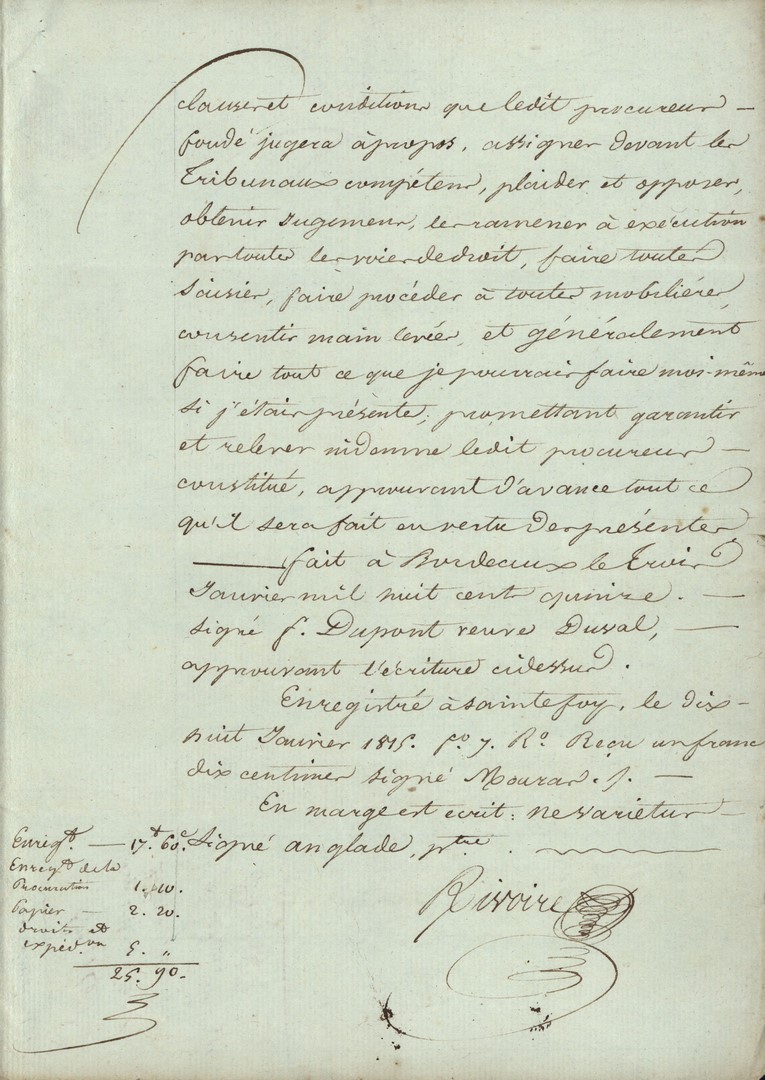 clauses et conditions que ledit procureur –
fondé jugera àpropos, assigner devant les
Tribunaux compétens, plaider et opposer,
obtenir Jugemens, les ramener à exécution
par toutes les voies de droit, faire toutes
Saisies, faire procéder à toutes mobilières,
consentir main levées, et généralement
faire tout ce que je pourrais faire moi-même
si j'étais présente; promettant garantir
et relever indemne ledit procureur –
constitué, approuvant d'avance tout ce
qu'il sera fait en vertu des présentes,
— fait à Bordeaux le Trois
Janvier mil huit cent quinze. —
signé f. Dupont veuve Duval, —
approuvant l'écriture cidessus.
Enregistré à Saintefoy, le dix-
huit Janvier 1815. fo. 7. Ro. Reçu un franc
dix centimes signé Mouras. J. —
En marge est ecrit: ne varietur –
Signé anglade, ptre.
Rivoire
Enregt. — 17.f 60.c
Enregt. de la
Procuration 1. 10.
Papier — 2. 20.
droits et
expédon. 5. "
25. 90.